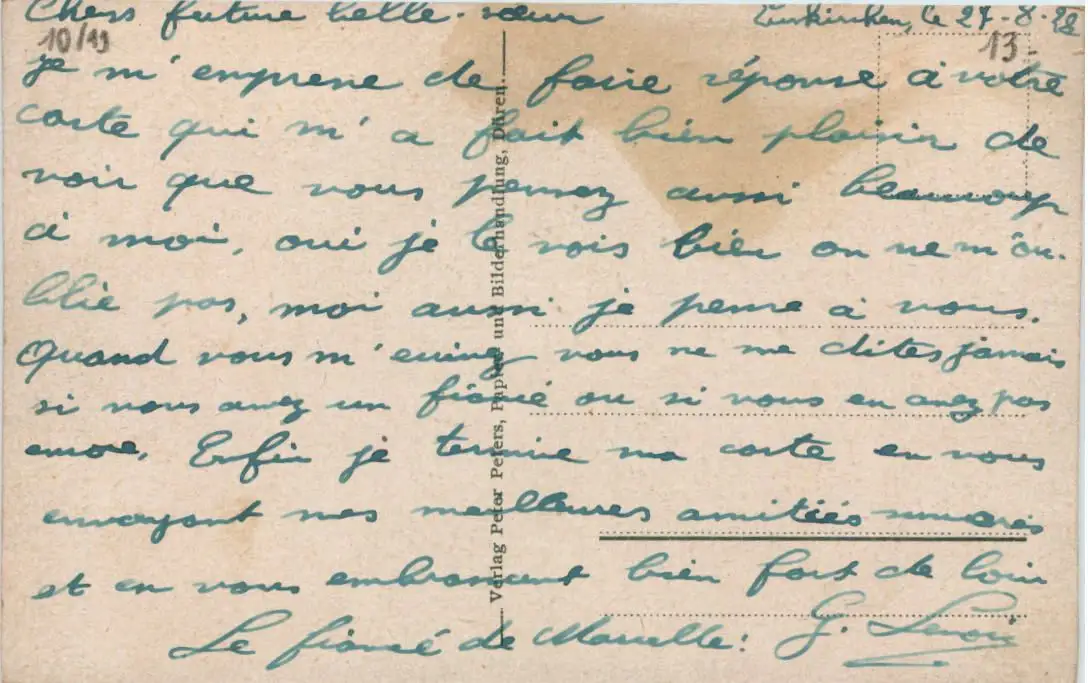 Chers future belle-sœur Euskirchen, le 27-8-28
10/19 13-
je m'emprene de faire réponse à votre
carte qui m'a fait bien plaisir de
voir que vous pensez aussi beaucoup
à moi, oui je le vois bien on ne m'ou-
blie pas, moi aussi je pense à vous.
Quand vous m'ecrivez vous ne me dites jamais
si vous avez un fiancé ou si vous en avez pas
encore. Enfin je termine ma carte en vous
envoyant mes meilleures amitiés
et en vous embrassant bien fort de loin
Le fiancé de Marcelle: G. Lenoir
Verlag Peter Peters, Papier und Bilderhandlung, Düren.